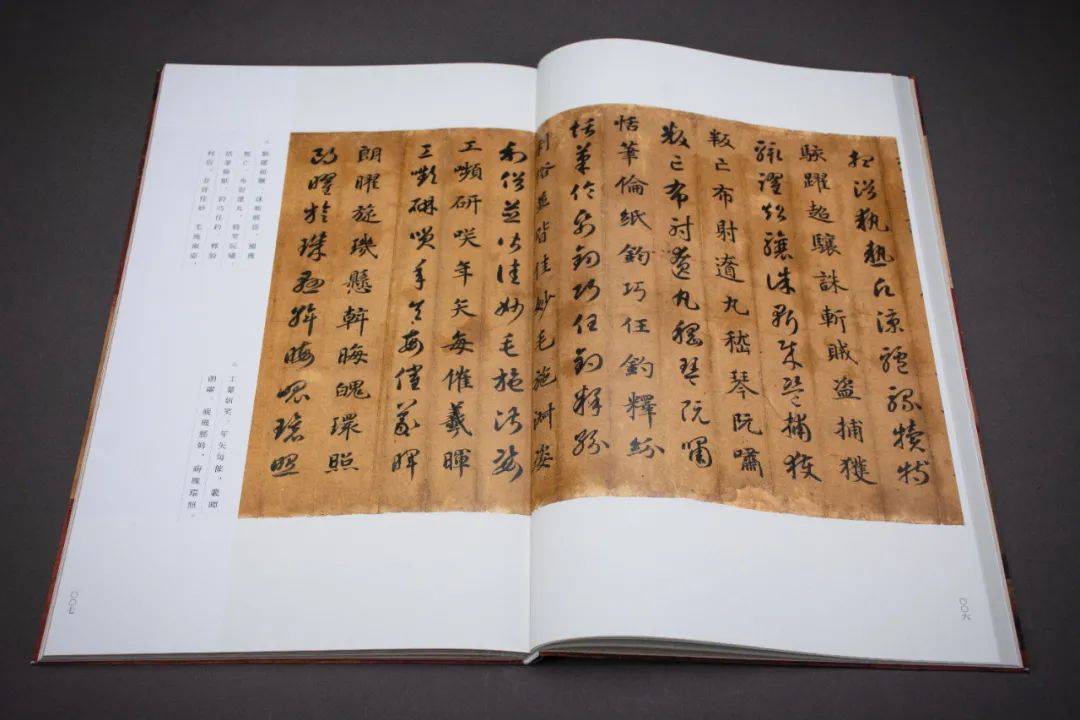 想浴執熱願涼驢騾犢特
駭躍超驤誅斬賊盜捕獲
駭躍超驤誅斬賊盜捕獲
叛亡布射遼丸嵇琴阮嘯
叛亡布射遼丸嵇琴阮嘯
恬筆倫紙鈞巧任釣釋紛
恬筆倫紙鈞巧任釣釋紛
利俗並皆佳妙毛施淑姿
利俗並皆佳妙毛施淑姿
工嚬研咲年矢每催羲暉
工嚬研咲年矢每催羲暉
朗曜旋璣懸斡晦魄環照
朗曜旋璣懸斡晦魄環照
〇〇六
駭躍超驤，誅斬賊盜，捕獲
叛亡。布射遼丸，嵇琴阮嘯。
恬筆倫紙，鈞巧任釣。釋紛
利俗，並皆佳妙。毛施淑姿，
工顰妍笑。年矢每催，羲暉
朗曜。璇璣懸斡，晦魄環照。
〇〇七